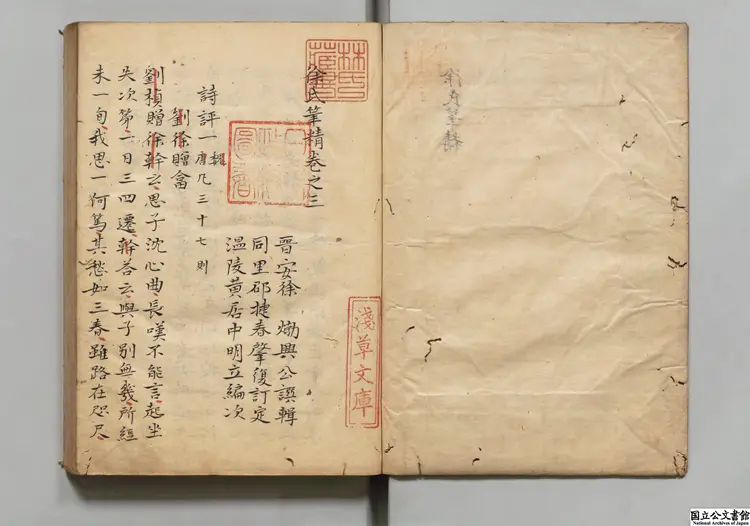 徐氏筆精卷之三
晉安徐𤊹興公譔輯
同里邵捷春肇復訂定
溫陵黃居中明立編次
詩評一 凡三十七則
劉徐贈畣
劉楨贈徐幹云思子沈心曲長嘆不能言起坐
失次第一日三四遷幹荅云與子別無幾所經
未一旬我思一何篤其愁如三春雖路在咫尺
林氏藏書
日本政府圖書
淺草文庫
国立公文書館
National Archives of Japan